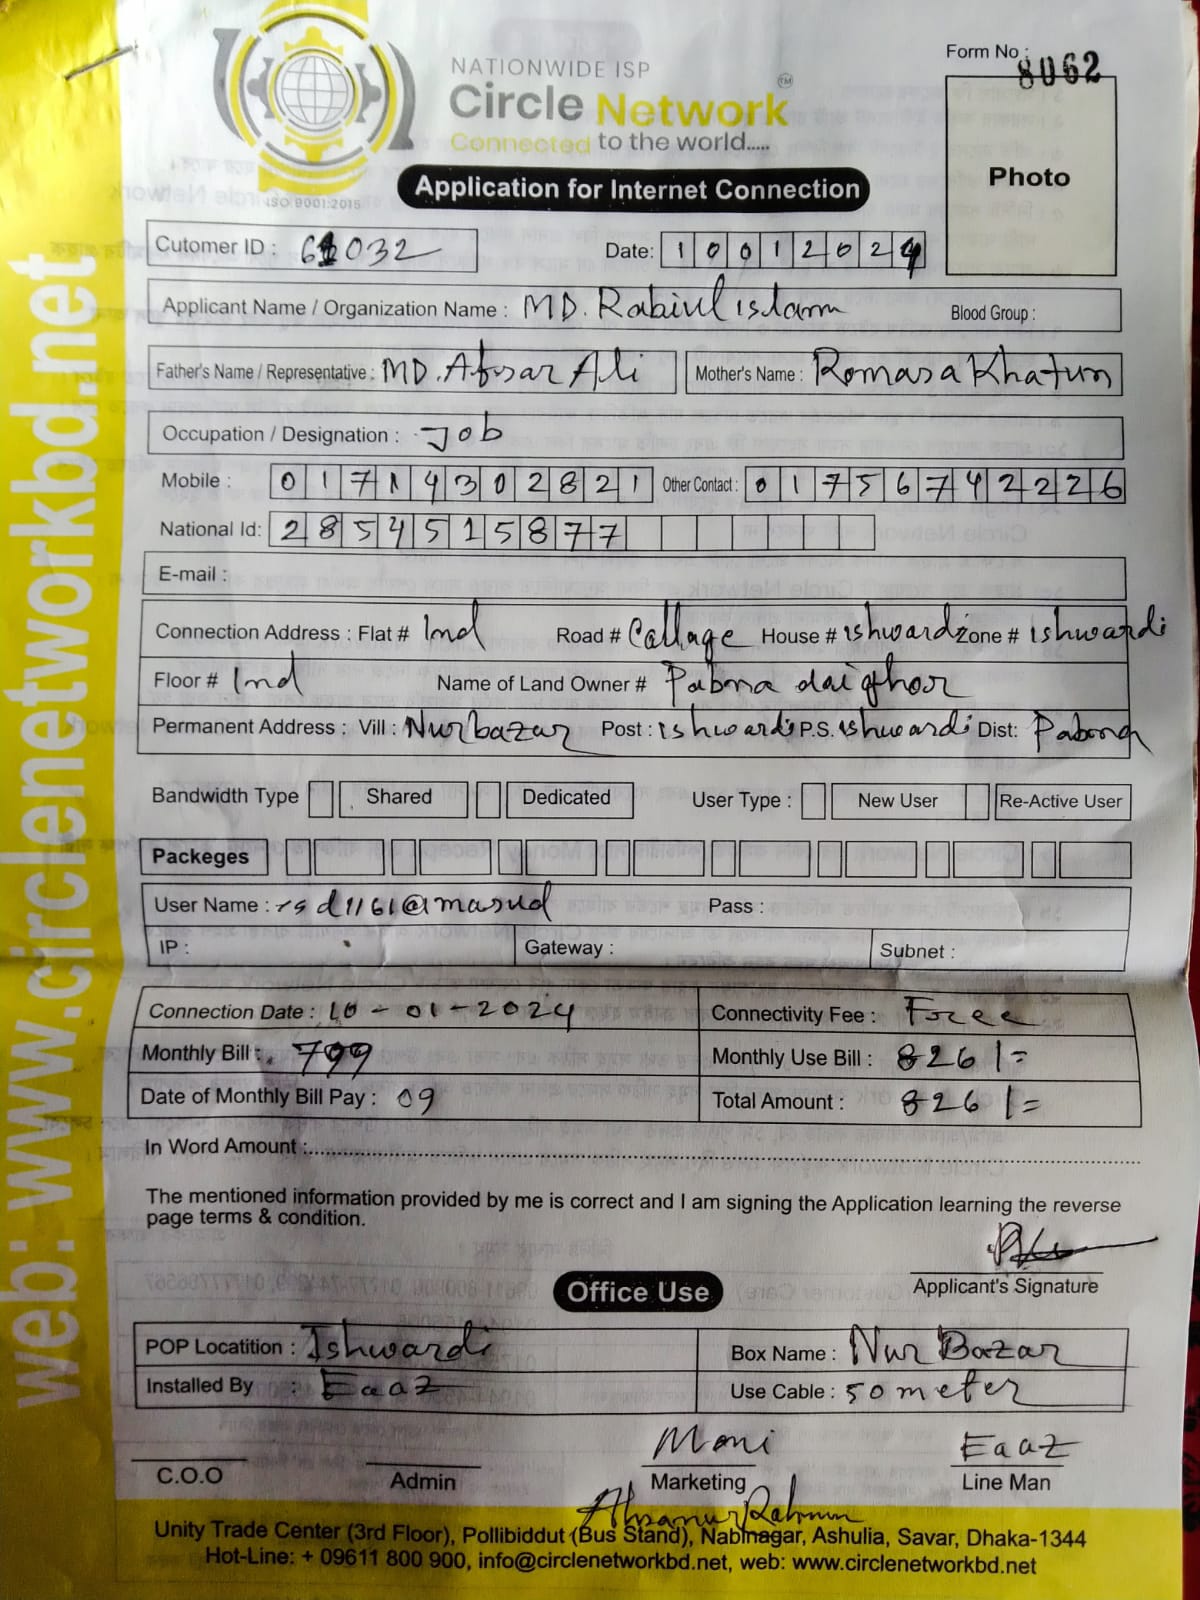 Form No : 8062
NATIONWIDE ISP
Circle Network TM
Connected to the world.....
ISO 9001:2015
Photo
Application for Internet Connection
Cutomer ID : 61032 Date: 10012024
Applicant Name / Organization Name : MD. Rabiul islam Blood Group :
Father's Name / Representative : MD. Afsar Ali Mother's Name : Romasa Khatun
Occupation / Designation : Job
Mobile : 01714302821 Other Contact : 01756742226
National Id: 2854515877
E-mail :
Connection Address : Flat # Ind Road # Callage House # ishwardi Zone # ishwardi
Floor # Ind Name of Land Owner # Pabna daighor
Permanent Address : Vill : Nurbazar Post : ishwardi P.S. ishwardi Dist: Pabna
Bandwidth Type Shared Dedicated User Type : New User Re-Active User
Packeges
User Name : rsd1161@masud Pass :
IP : Gateway : Subnet :
Connection Date : 10-01-2024 Connectivity Fee : Free
Monthly Bill : 799 Monthly Use Bill : 826/=
Date of Monthly Bill Pay : 09 Total Amount : 826/=
In Word Amount :
The mentioned information provided by me is correct and I am signing the Application learning the reverse
page terms & condition.
Applicant's Signature
Office Use
POP Locatition : Ishwardi Box Name : Nur Bazar
Installed By : Eaaz Use Cable : 50 meter
Moni Eaaz
C.O.O Admin Marketing Line Man
Ahsanur Rahman
Unity Trade Center (3rd Floor), Pollibiddut (Bus Stand), Nabinagar, Ashulia, Savar, Dhaka-1344
Hot-Line: + 09611 800 900, info@circlenetworkbd.net, web: www.circlenetworkbd.net
web: www.circlenetworkbd.net